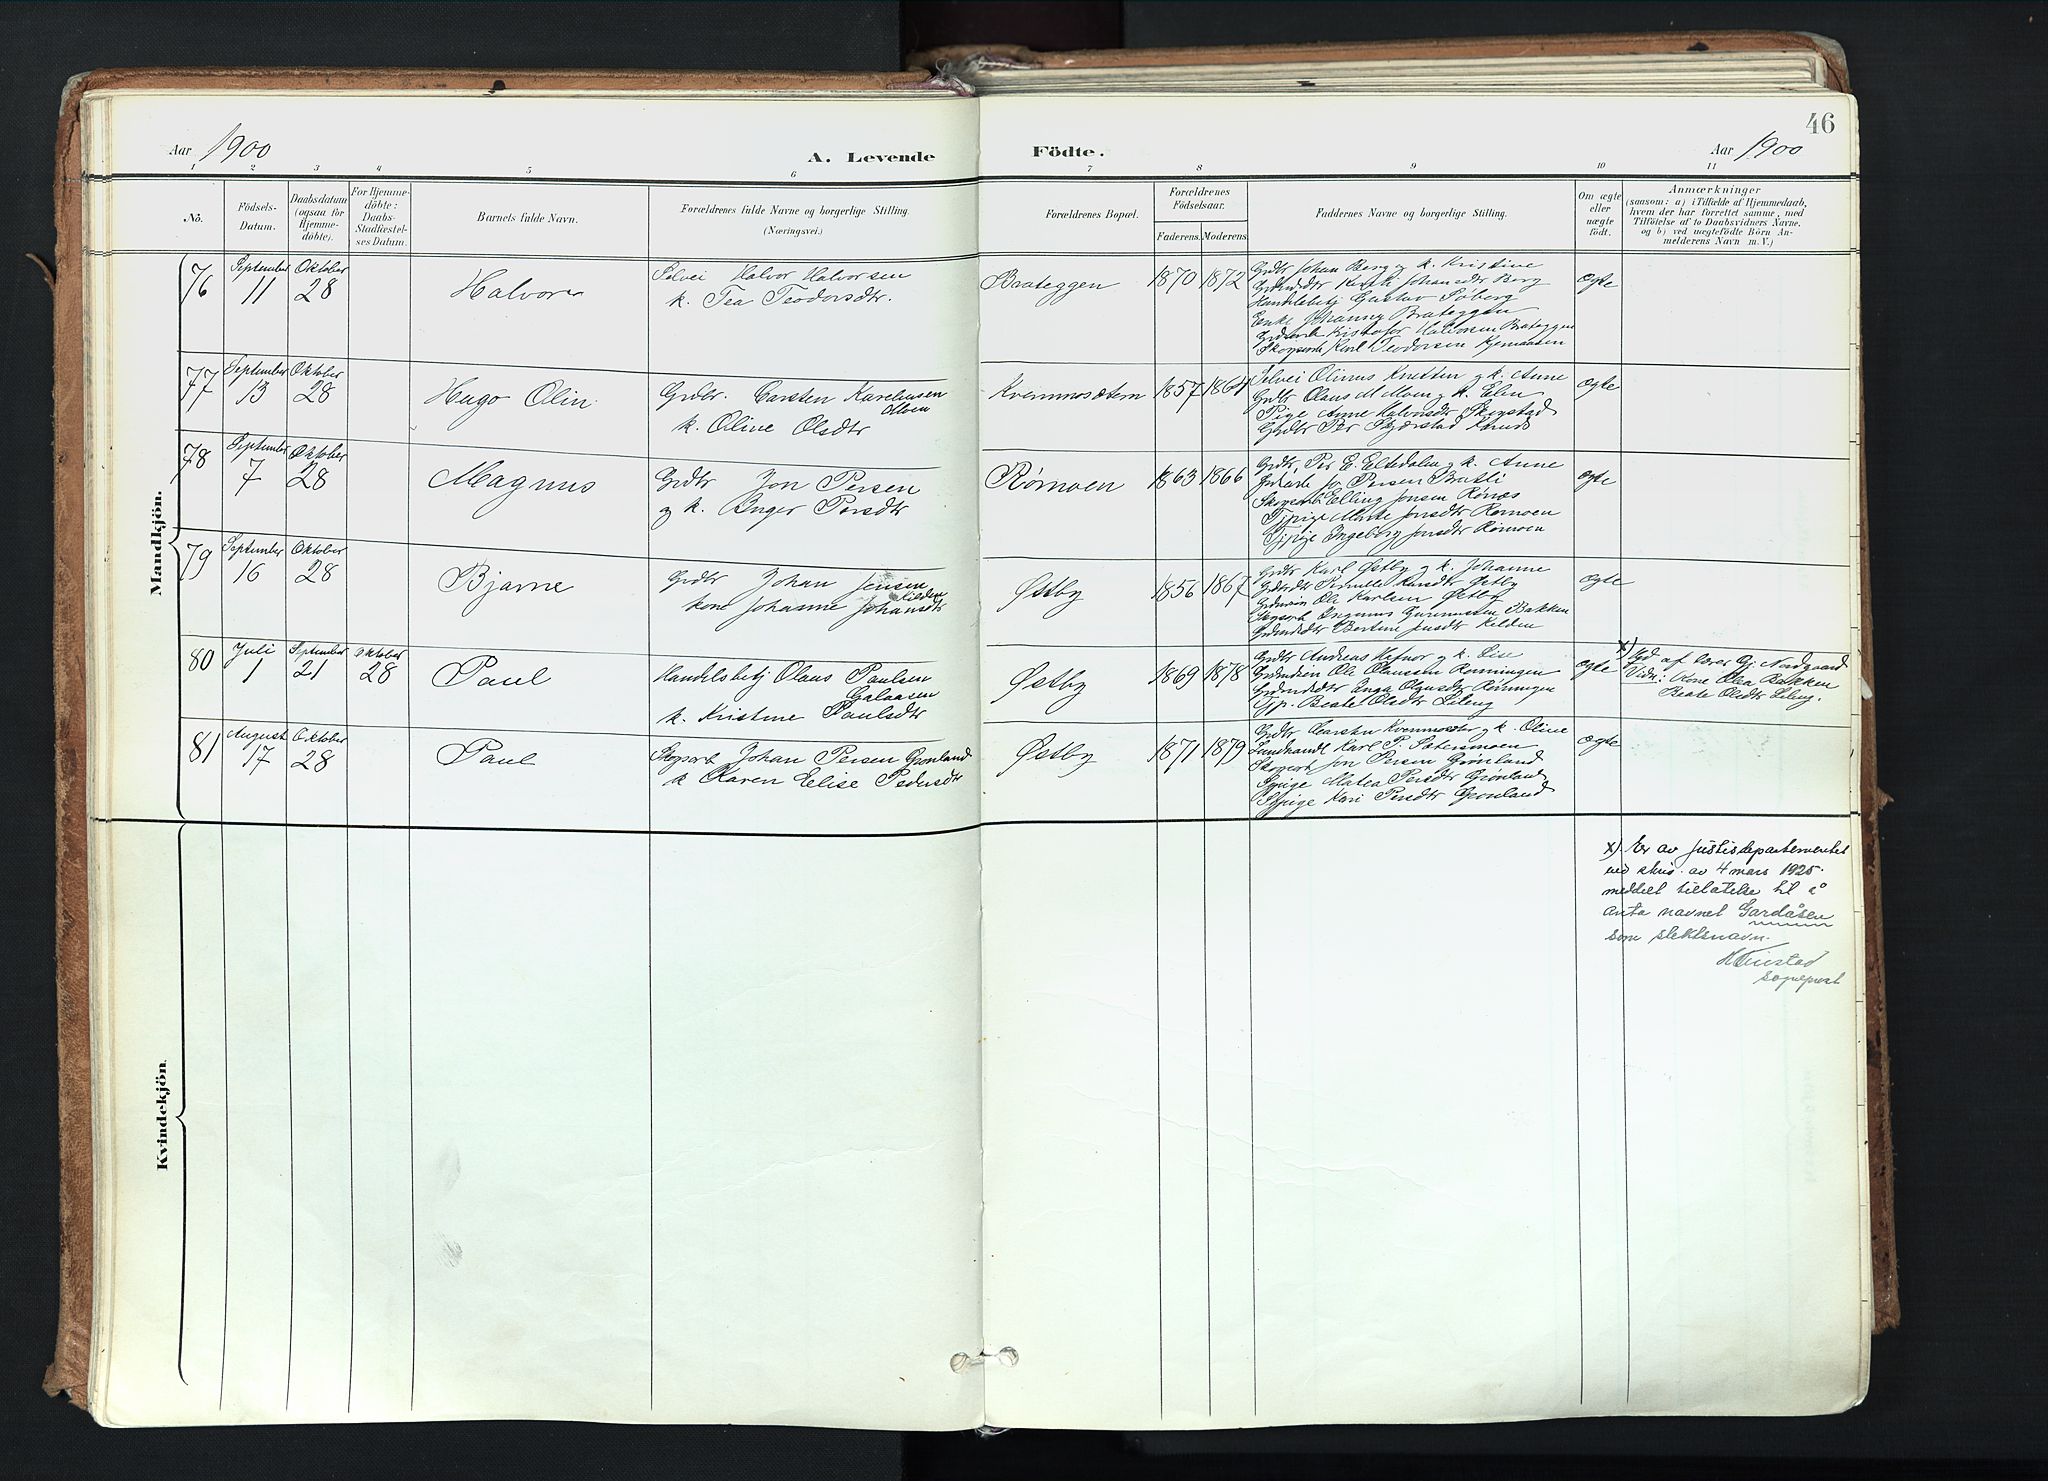 46
Aar 1900
A. Levende Födte.
Aar 1900
1 2 3 4 5 6 7 8 9 10 11
No.
Födsels-
Datum.
Daabsdatum
(ogsaa for
Hjemme-
döbte).
For Hjemme-
döbte:
Daabs-
Stadfæstel-
ses Datum.
Barnets fulde Navn.
Forældrenes fulde Navne og borgerlige Stilling.
(Næringsvei.)
Forældrenes Bopæl.
Forældrenes
Födselsaar.
Faderens. Moderens.
Faddernes Navne og borgerlige Stilling.
Om ægte
eller
uægte
födt.
Anmærkninger
(saasom: a) i Tilfælde af Hjemmedaab,
hvem der har forrettet samme, med
Tilföielse af to Daabsvidners Navne,
og b) ved uægtefödte Börn An-
melderens Navn m. V.)
Mandkjön.
76
September
11
Oktober
28
Halvor
Selvei Halvor Halvorsen
k. Tea Teodorsdtr.
Brateggen
1870 1872
Grdbr Johan Berg og k. Kristine
Johansdtr Berg
Handelsbetj Gustav Söberg
Enke Johanne Brateggen
Kristofer Halvorsen Brateggen
Karl Teodorsen
ægte
77
September
13
Oktober
28
Hugo Olin
Grdbr. Carsten Kareliusen
Moen
k. Olive Olsdtr
Kvernmosætern
1857 1864
Selvei Olinus Knetten og k. Anne
Grdbr Olaus M Moen og k. Elen
Pige Anne Halvorsdtr Skogstad
Per
ægte
78
September
7
Oktober
28
Magnus
Grdbr Jon Persen
og k. Inger Persdtr
Rømoen
1863 1866
Grdbr. Per E. Eltedalen og k. Anne
Jo Persen Bratli
Skogsarb Elling Jonsen Rønæs
Tjpige Marte Jonsdtr Rømoen
Tjpige Ingeborg Jonsdtr Rømoen
ægte
79
September
16
Oktober
28
Bjarne
Grdbr Johan Jensen
Kilden
kone Johanne Johansdtr
Østby
1856 1867
Grdbr Karl Østby og k. Johanne
Pernille Hansdtr Østby
Ole Karlsen Østby
Skogsarb Ingemus Gunnussen Bakken
Bertine Jensdtr Kilden
ægte
80
Juli
1
September
21
Oktober
28
Paul
Handelsbetj Olaus Paulsen
Galaasen
k. Kristine Paulsdtr
Østby
1869 1878
Grdbr Andreas Hafnor og k. Lise
Ole Olaussen Rønningen
Inga Olausdtr Rønningen
Tjp. Beate Olsdtr Leleng
ægte
x)
Ved af lærer Gj. Nordgaard
Vidn: Kone Olea Bakken
Beate Olsdtr Leleng.
81
August
17
Oktober
28
Paul
Skogsarb Johan Persen Grønland
k Karen Elise Pedersdtr
Østby
1871 1879
Grdbr Carsten Kvernmosæter og k. Olive
Landhandl Karl P. Sætersmoen
Skogsarb Jon Persen Grønland
Tjpige Matea Persdtr Grønland
Tjpige Kari Persdtr Grønland
ægte
Kvindekjön.
x) Er av Justisdepartementet
ved skriv. av 4 mars 1925.
meddelt tillatelse til å
anta navnet Gardåsen
som slektsnavn.
sogneprest